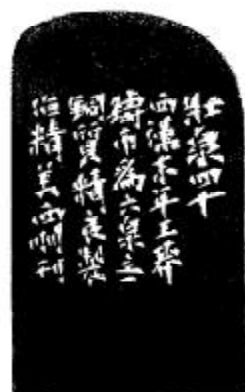 壮泉四十
西漢末年王莽
鑄币為六泉之一
銅質精良製
造精美西泗刊